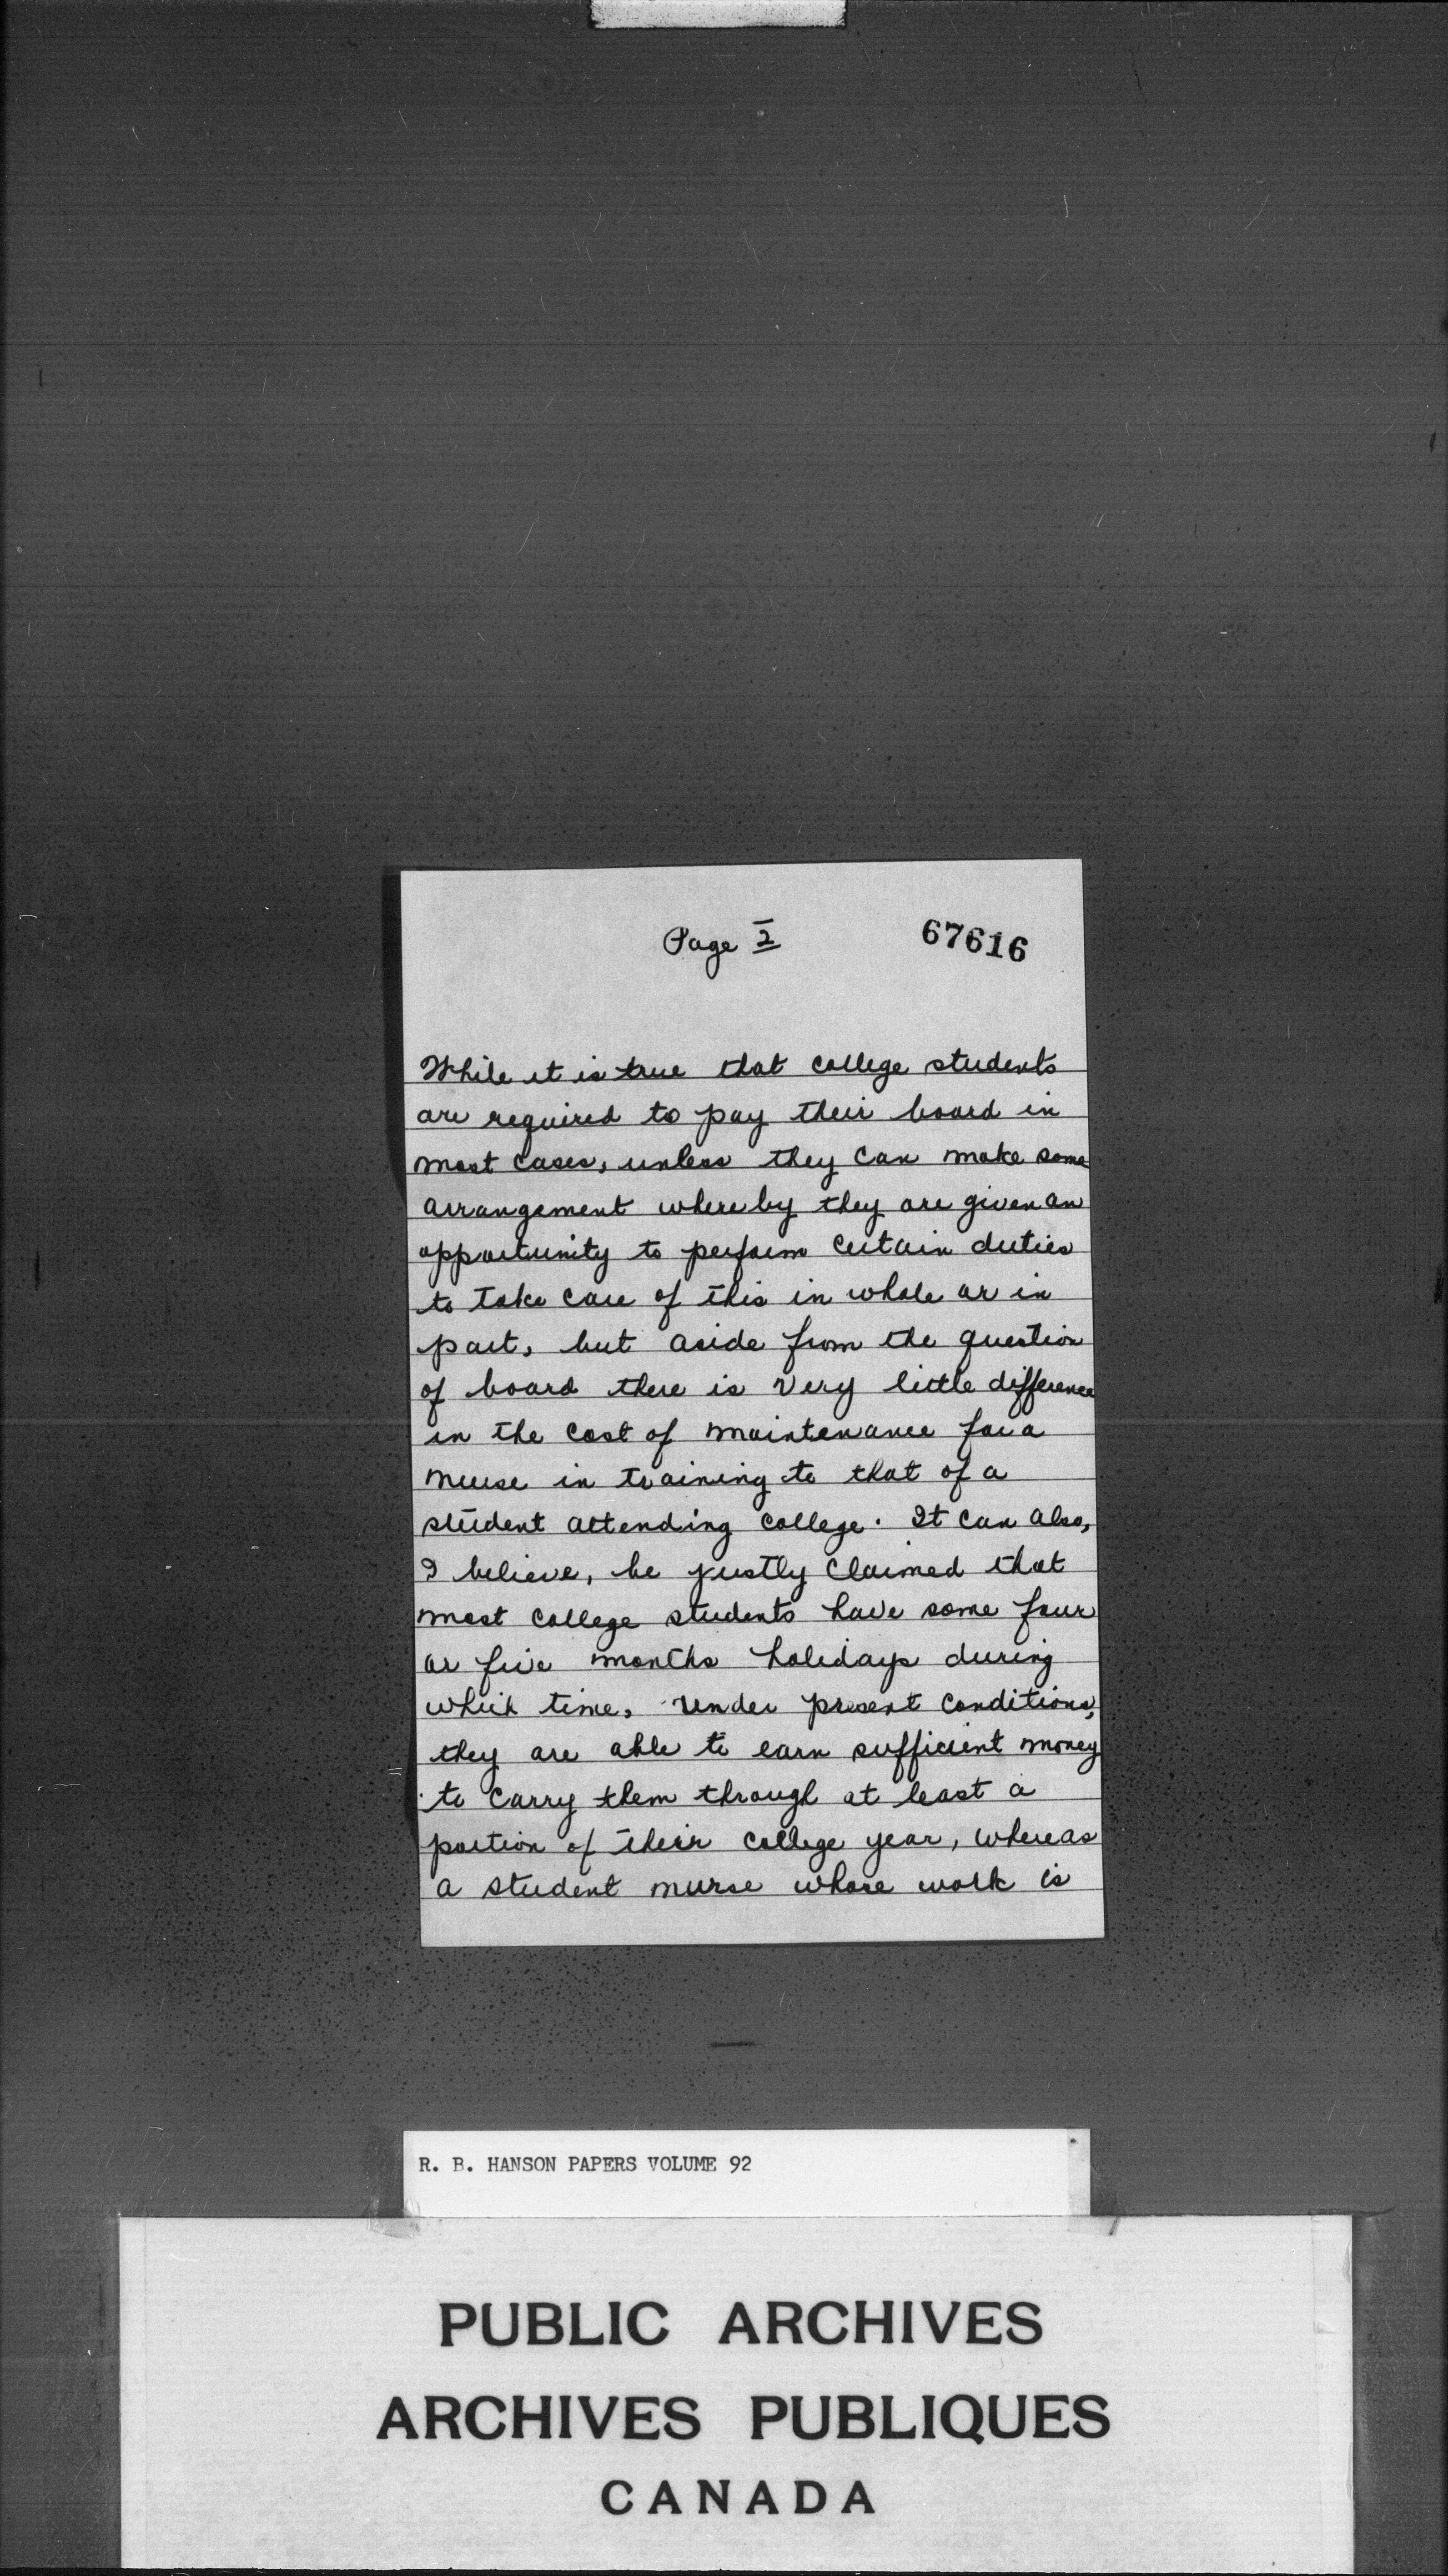 Page 2
67616
While it is true that college students
are required to pay their board in
most cases, unless they can make some
arrangement whereby they are given an
opportunity to perform certain duties
to take care of this in whole or in
part, but aside from the question
of board there is very little difference
in the cost of maintenance for a
nurse in training to that of a
student attending college. It can also,
I believe, be justly claimed that
most college students have some four
or five months holidays during
which time, under present conditions,
they are able to earn sufficient money
to carry them through at least a
portion of their college year, whereas
a student nurse whose work is
R. B. HANSON PAPERS VOLUME 92
PUBLIC ARCHIVES
ARCHIVES PUBLIQUES
CANADA